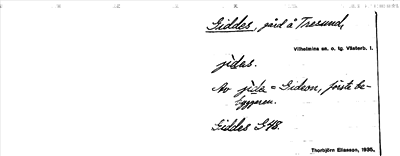 Giddes, gård å Tresund,
Vilhelmina sn. o. tg. Västerb. l.
jìdas.
Av jìda = Gideon, förste be-
byggaren.
Giddes G 48.
Thorbjörn Eliasson, 1935.